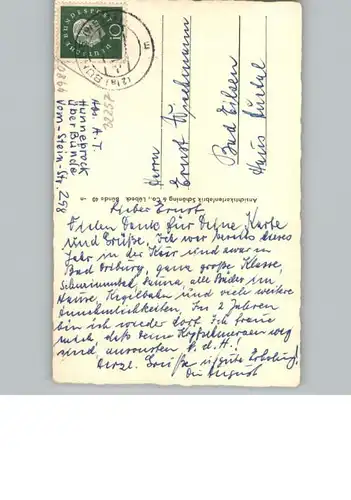 DEUTSCHE BUNDESPOST
10
(21a) BÜN
Abs. A. T.
Hunnebrock
über Bünde
Vom-Stein-Str. 258
Herrn
Ernst Wiechmann
Bad Eilsen
Haus
Ansichtskartenfabrik Schöning & Co., Lübeck Bünde 40
Lieber Ernst
Vielen Dank für Deine Karte
und Grüße. Ich war bereits dieses
Jahr in der Kur und zwar in
Bad Driburg, ganz große Klasse,
Schwimmbad, Sauna, alle Bäder im
Hause, Kegelbahn und viele weitere
Annehmlichkeiten. In 2 Jahren
bin ich wieder dort. Ich freue
mich, daß deine Kopfschmerzen weg
sind, ansonsten K. d. H.!
Herzl. Grüße u. gute Erholung!
Dein August